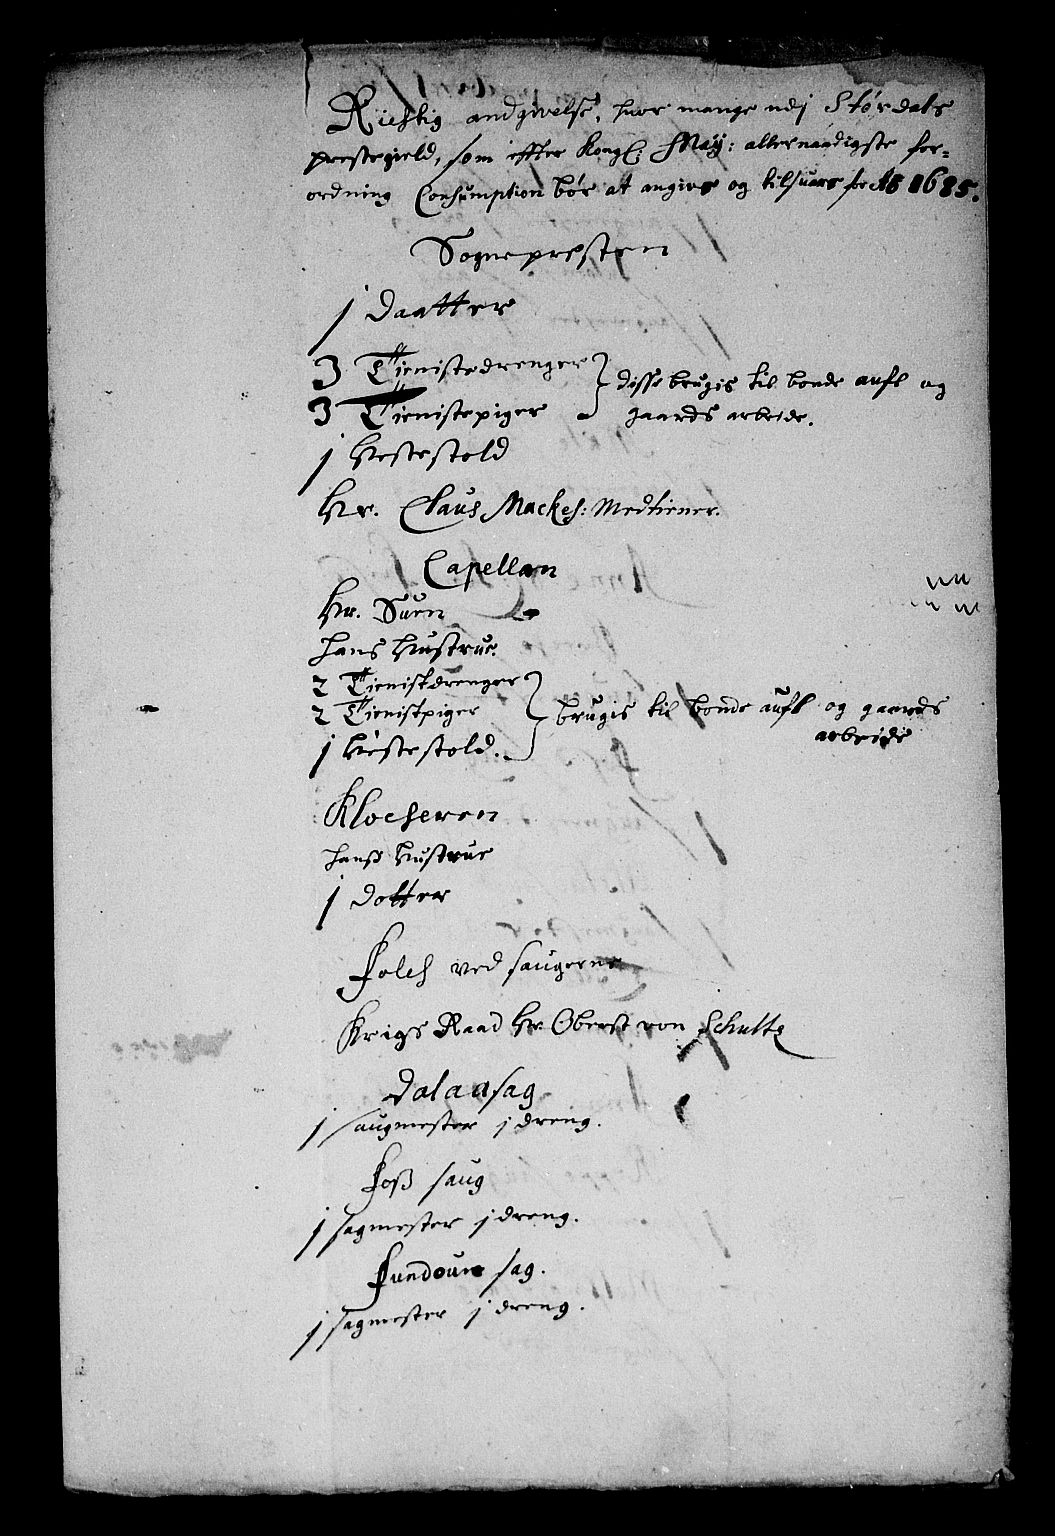 Richtig andgivelse, huor mange udj Størdals
prestegield, som effter Kongl: May: allernaadigste for=
ordning Consumption bør at angives og tilsuars for Ao 1685.
Sognepresten
1 Daatter
3 Tienistedrenger } disse brugis til bonde aufl og
3 Tienistepiger gaards arbeide.
1 Hestestold
Hr. Claus Mackes: Medtiener.
Capellan
Hr. Suen
Hans Hustrue
2 Tienistdrenger
2 Tienistpiger } brugis til bonde aufl og gaards
1 Hestestold. arbeide
Klockeren
Hans Hustrue
1 Dotter
Folch ved saugerne
Krigs Raad Hr Oberst von Schultz
Dalaasag
1 saugmester 1 dreng.
Foss saug
1 sagmester 1 dreng.
Fundoun sag.
1 sagmester 1 dreng.